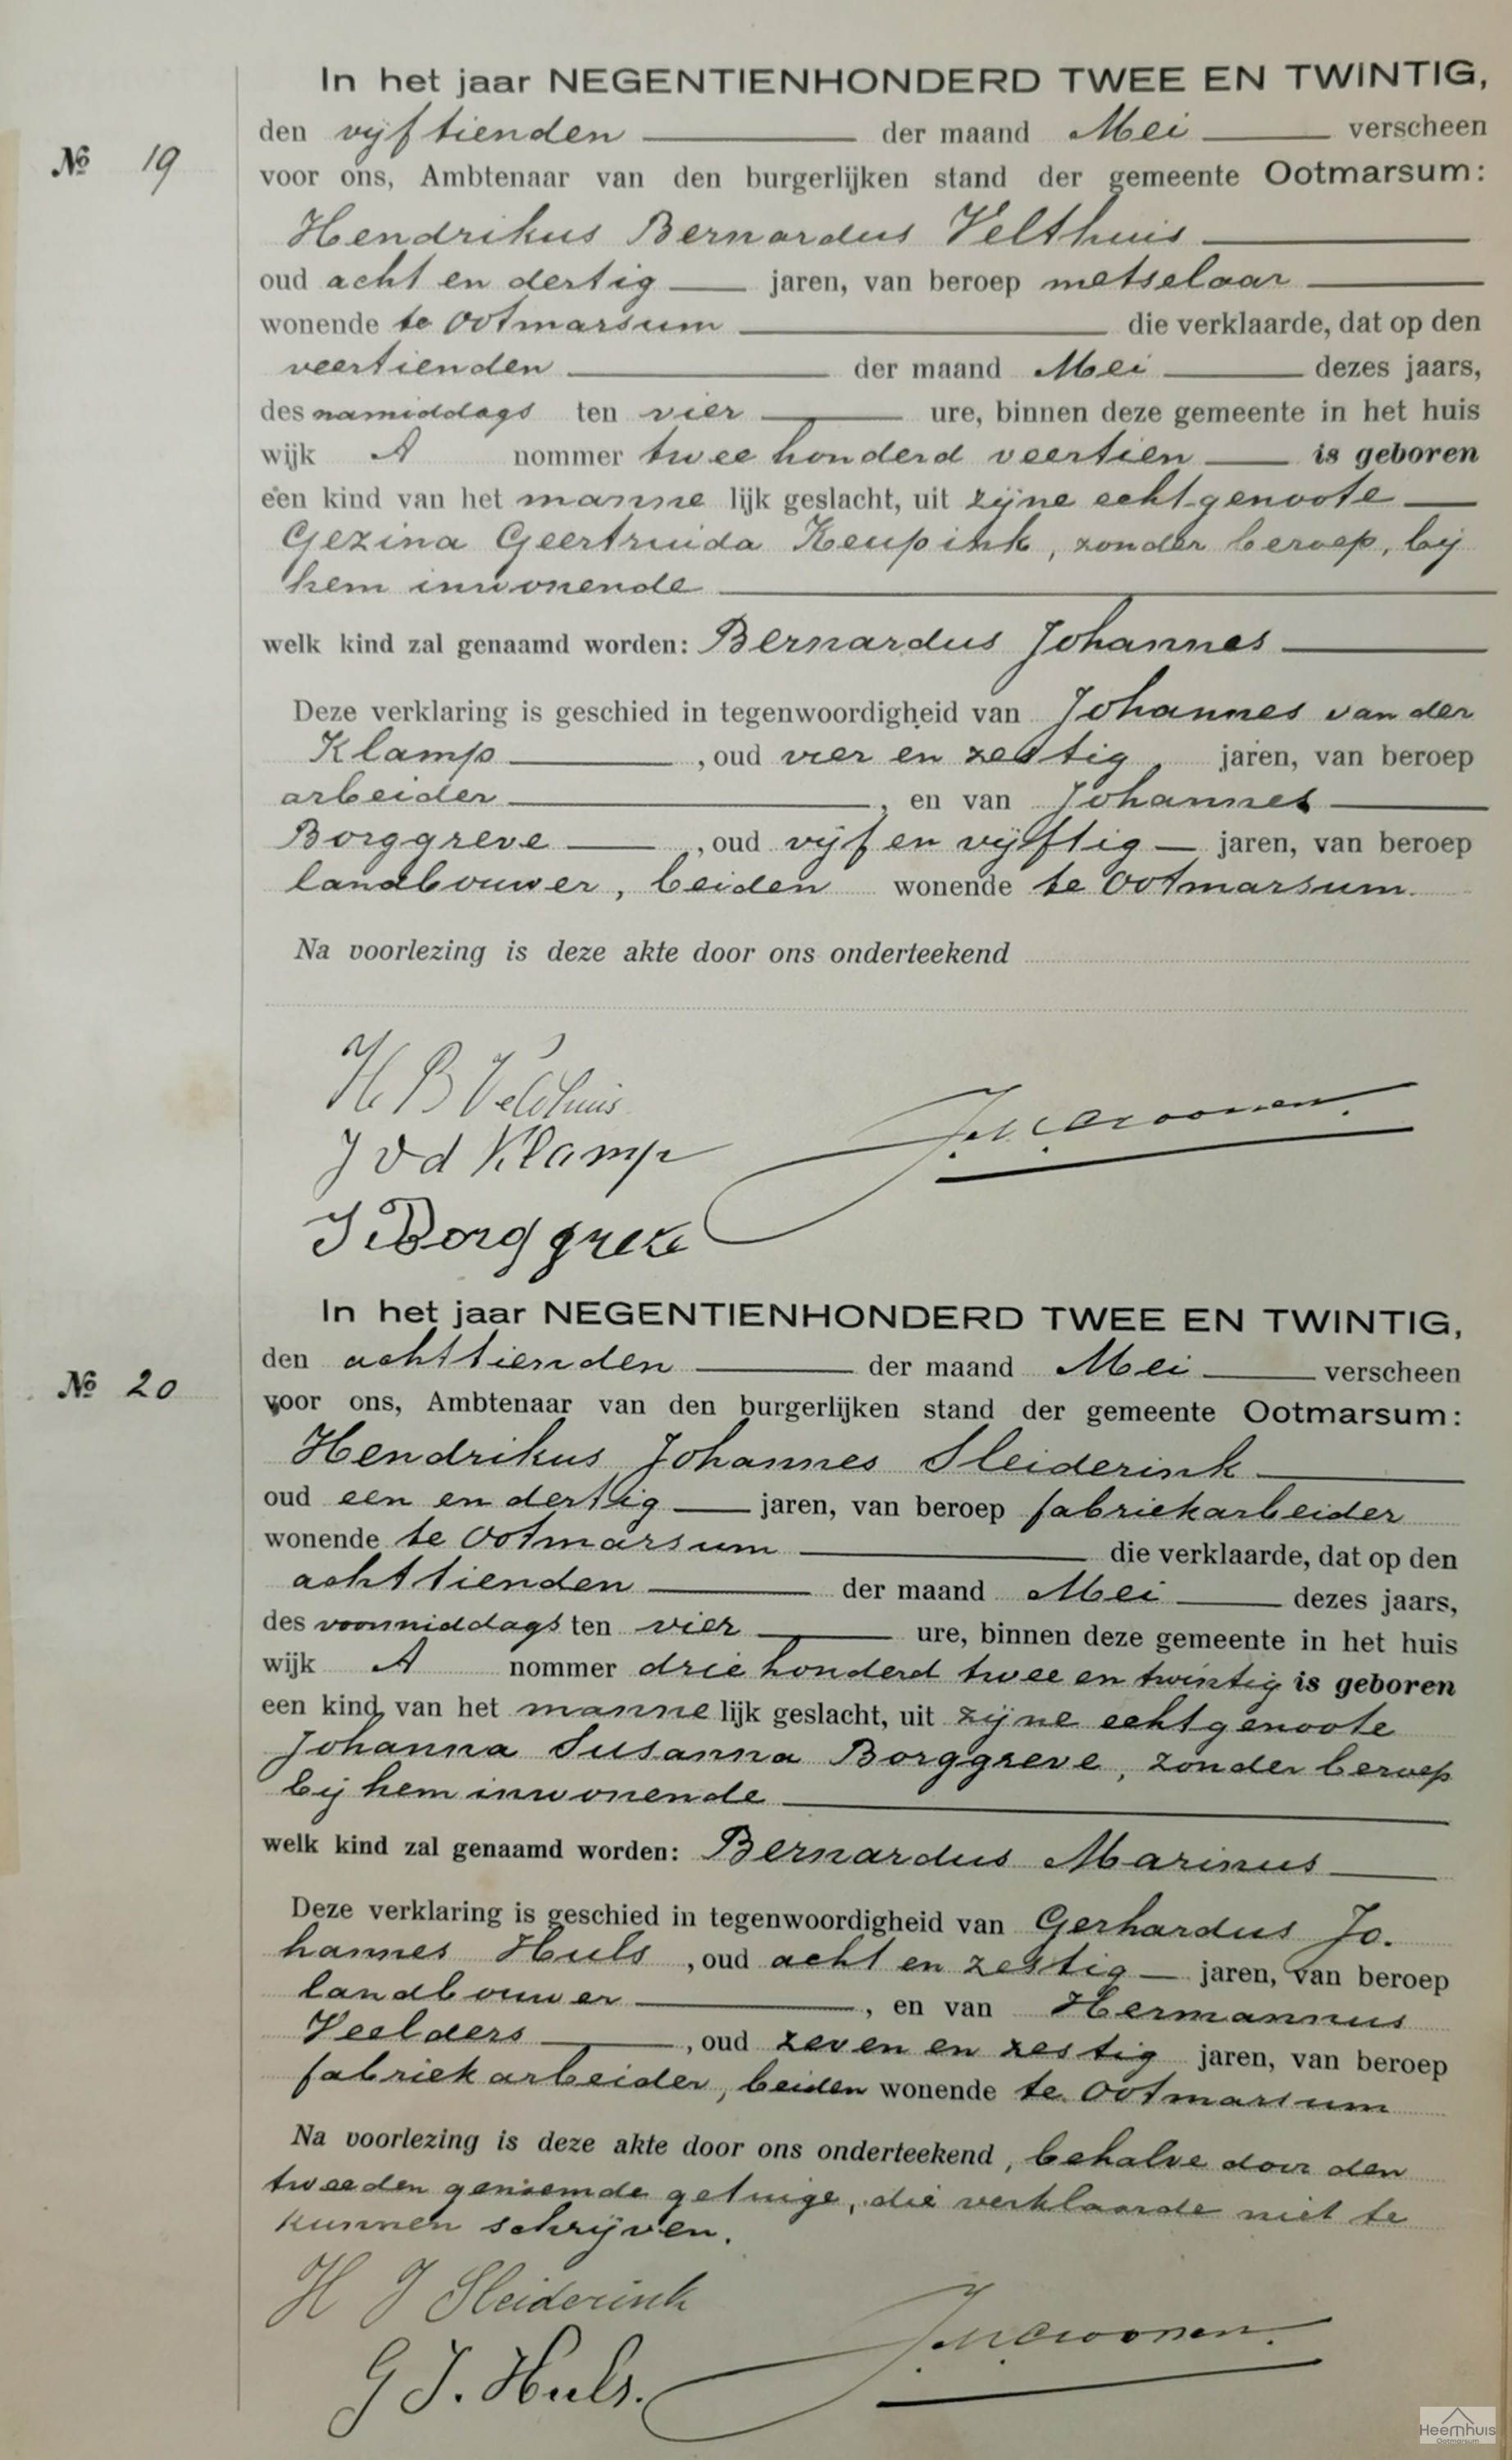 In het jaar NEGENTIENHONDERD TWEE EN TWINTIG,
den vijftienden der maand Mei verscheen
№ 19
voor ons, Ambtenaar van den burgerlijken stand der gemeente Ootmarsum:
Hendrikus Bernardus Velthuis
oud acht en dertig jaren, van beroep metselaar
wonende te Ootmarsum die verklaarde, dat op den
veertienden der maand Mei dezes jaars,
des namiddags ten vier ure, binnen deze gemeente in het huis
wijk A nommer twee honderd veertien is geboren
een kind van het manne lijk geslacht, uit zijne echtgenoote
Gezina Geertruida Keupink, zonder beroep, bij
hem inwonende
welk kind zal genaamd worden: Bernardus Johannes
Deze verklaring is geschied in tegenwoordigheid van Johannes van der
Klamp, oud vier en zestig jaren, van beroep
arbeider, en van Johannes
Borggreve, oud vijf en vijftig jaren, van beroep
landbouwer, beiden wonende te Ootmarsum.
Na voorlezing is deze akte door ons onderteekend
H B Velthuis
J v d Klamp
J Borggreve
In het jaar NEGENTIENHONDERD TWEE EN TWINTIG,
den achttienden der maand Mei verscheen
№ 20
voor ons, Ambtenaar van den burgerlijken stand der gemeente Ootmarsum:
Hendrikus Johannes Sleiderink
oud een en dertig jaren, van beroep fabriekarbeider
wonende te Ootmarsum die verklaarde, dat op den
achttienden der maand Mei dezes jaars,
des voormiddags ten vier ure, binnen deze gemeente in het huis
wijk A nommer drie honderd twee en twintig is geboren
een kind van het manne lijk geslacht, uit zijne echtgenoote
Johanna Susanna Borggreve, zonder beroep
bij hem inwonende
welk kind zal genaamd worden: Bernardus Marinus
Deze verklaring is geschied in tegenwoordigheid van Gerhardus Jo-
hannes Huls, oud acht en zestig jaren, van beroep
landbouwer, en van Hermannus
Veelders, oud zeven en zestig jaren, van beroep
fabriekarbeider, beiden wonende te Ootmarsum
Na voorlezing is deze akte door ons onderteekend, behalve door den
tweeden genoemde getuige, die verklaarde niet te
kunnen schrijven.
H J Sleiderink
G J. Huls.
Heemhuis
Ootmarsum